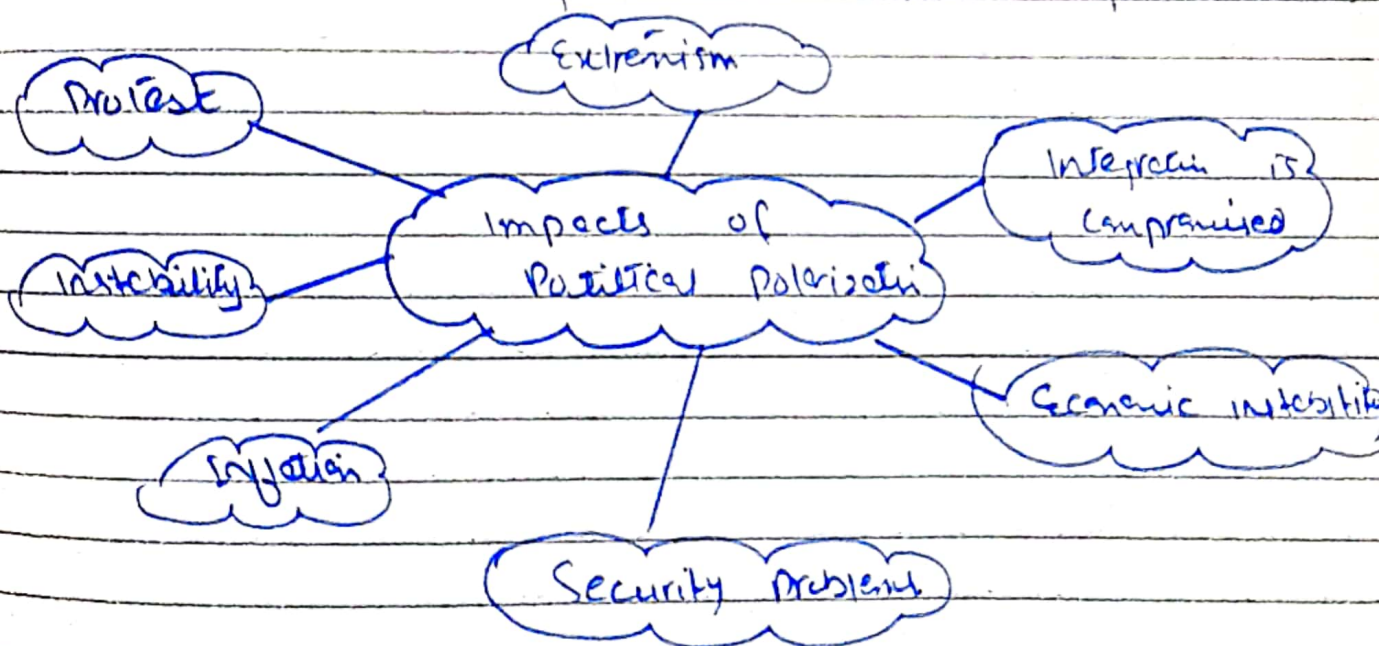 Extremism
Protest
Integration is
compromised
Impacts of
Political Polarization
Instability
Economic instability
Inflation
Security Problems